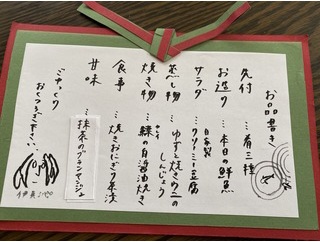 お品書き
先付 … 肴三種
お造り … 本日の鮮魚
サラダ … 自家製クリーミー豆腐
蒸し物 … ゆずと焼き穴子のしんじょう
焼き物 … 鰈の白醤油焼き
食事 … 焼きおにぎり茶漬
甘味 … 抹茶のブランマンジェ
ごゆっくり
おくつろぎ下さい